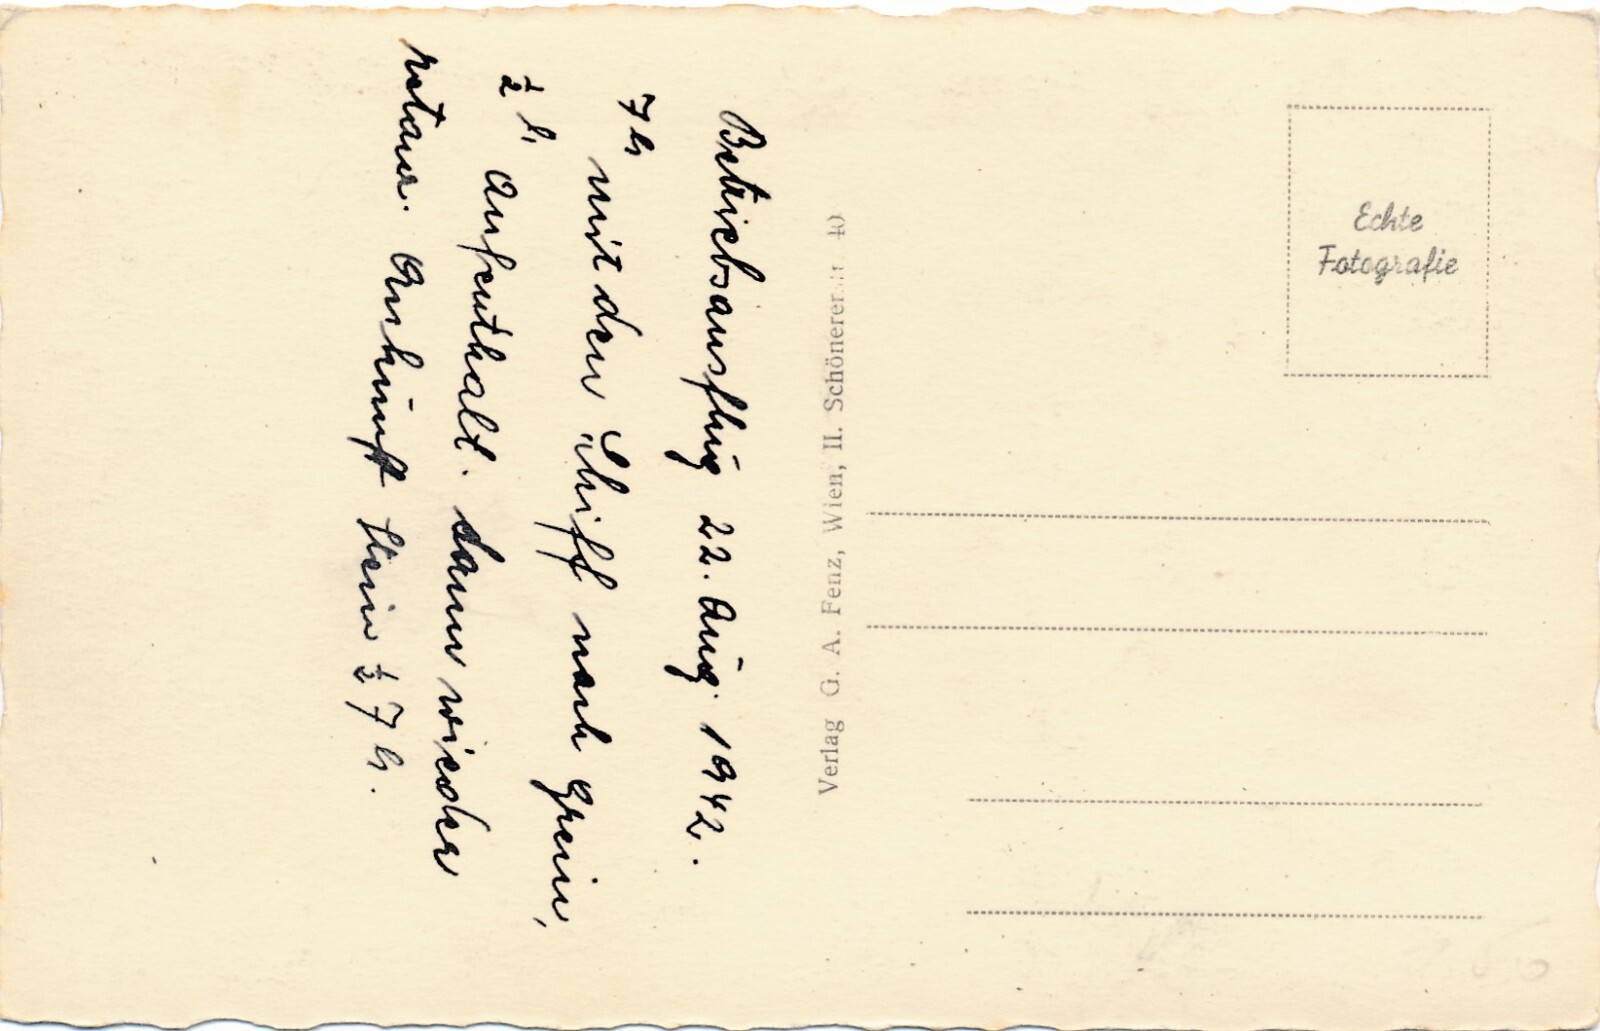 Betriebsausflug 22. Aug. 1942.
7 h mit den Schiff nach Grein,
½ h Aufenthalt. dann wieder
retour. Ankunft Stein ½ 7 h.
Verlag G. A. Fenz, Wien, II. Schönererstr. 40
Echte
Fotografie